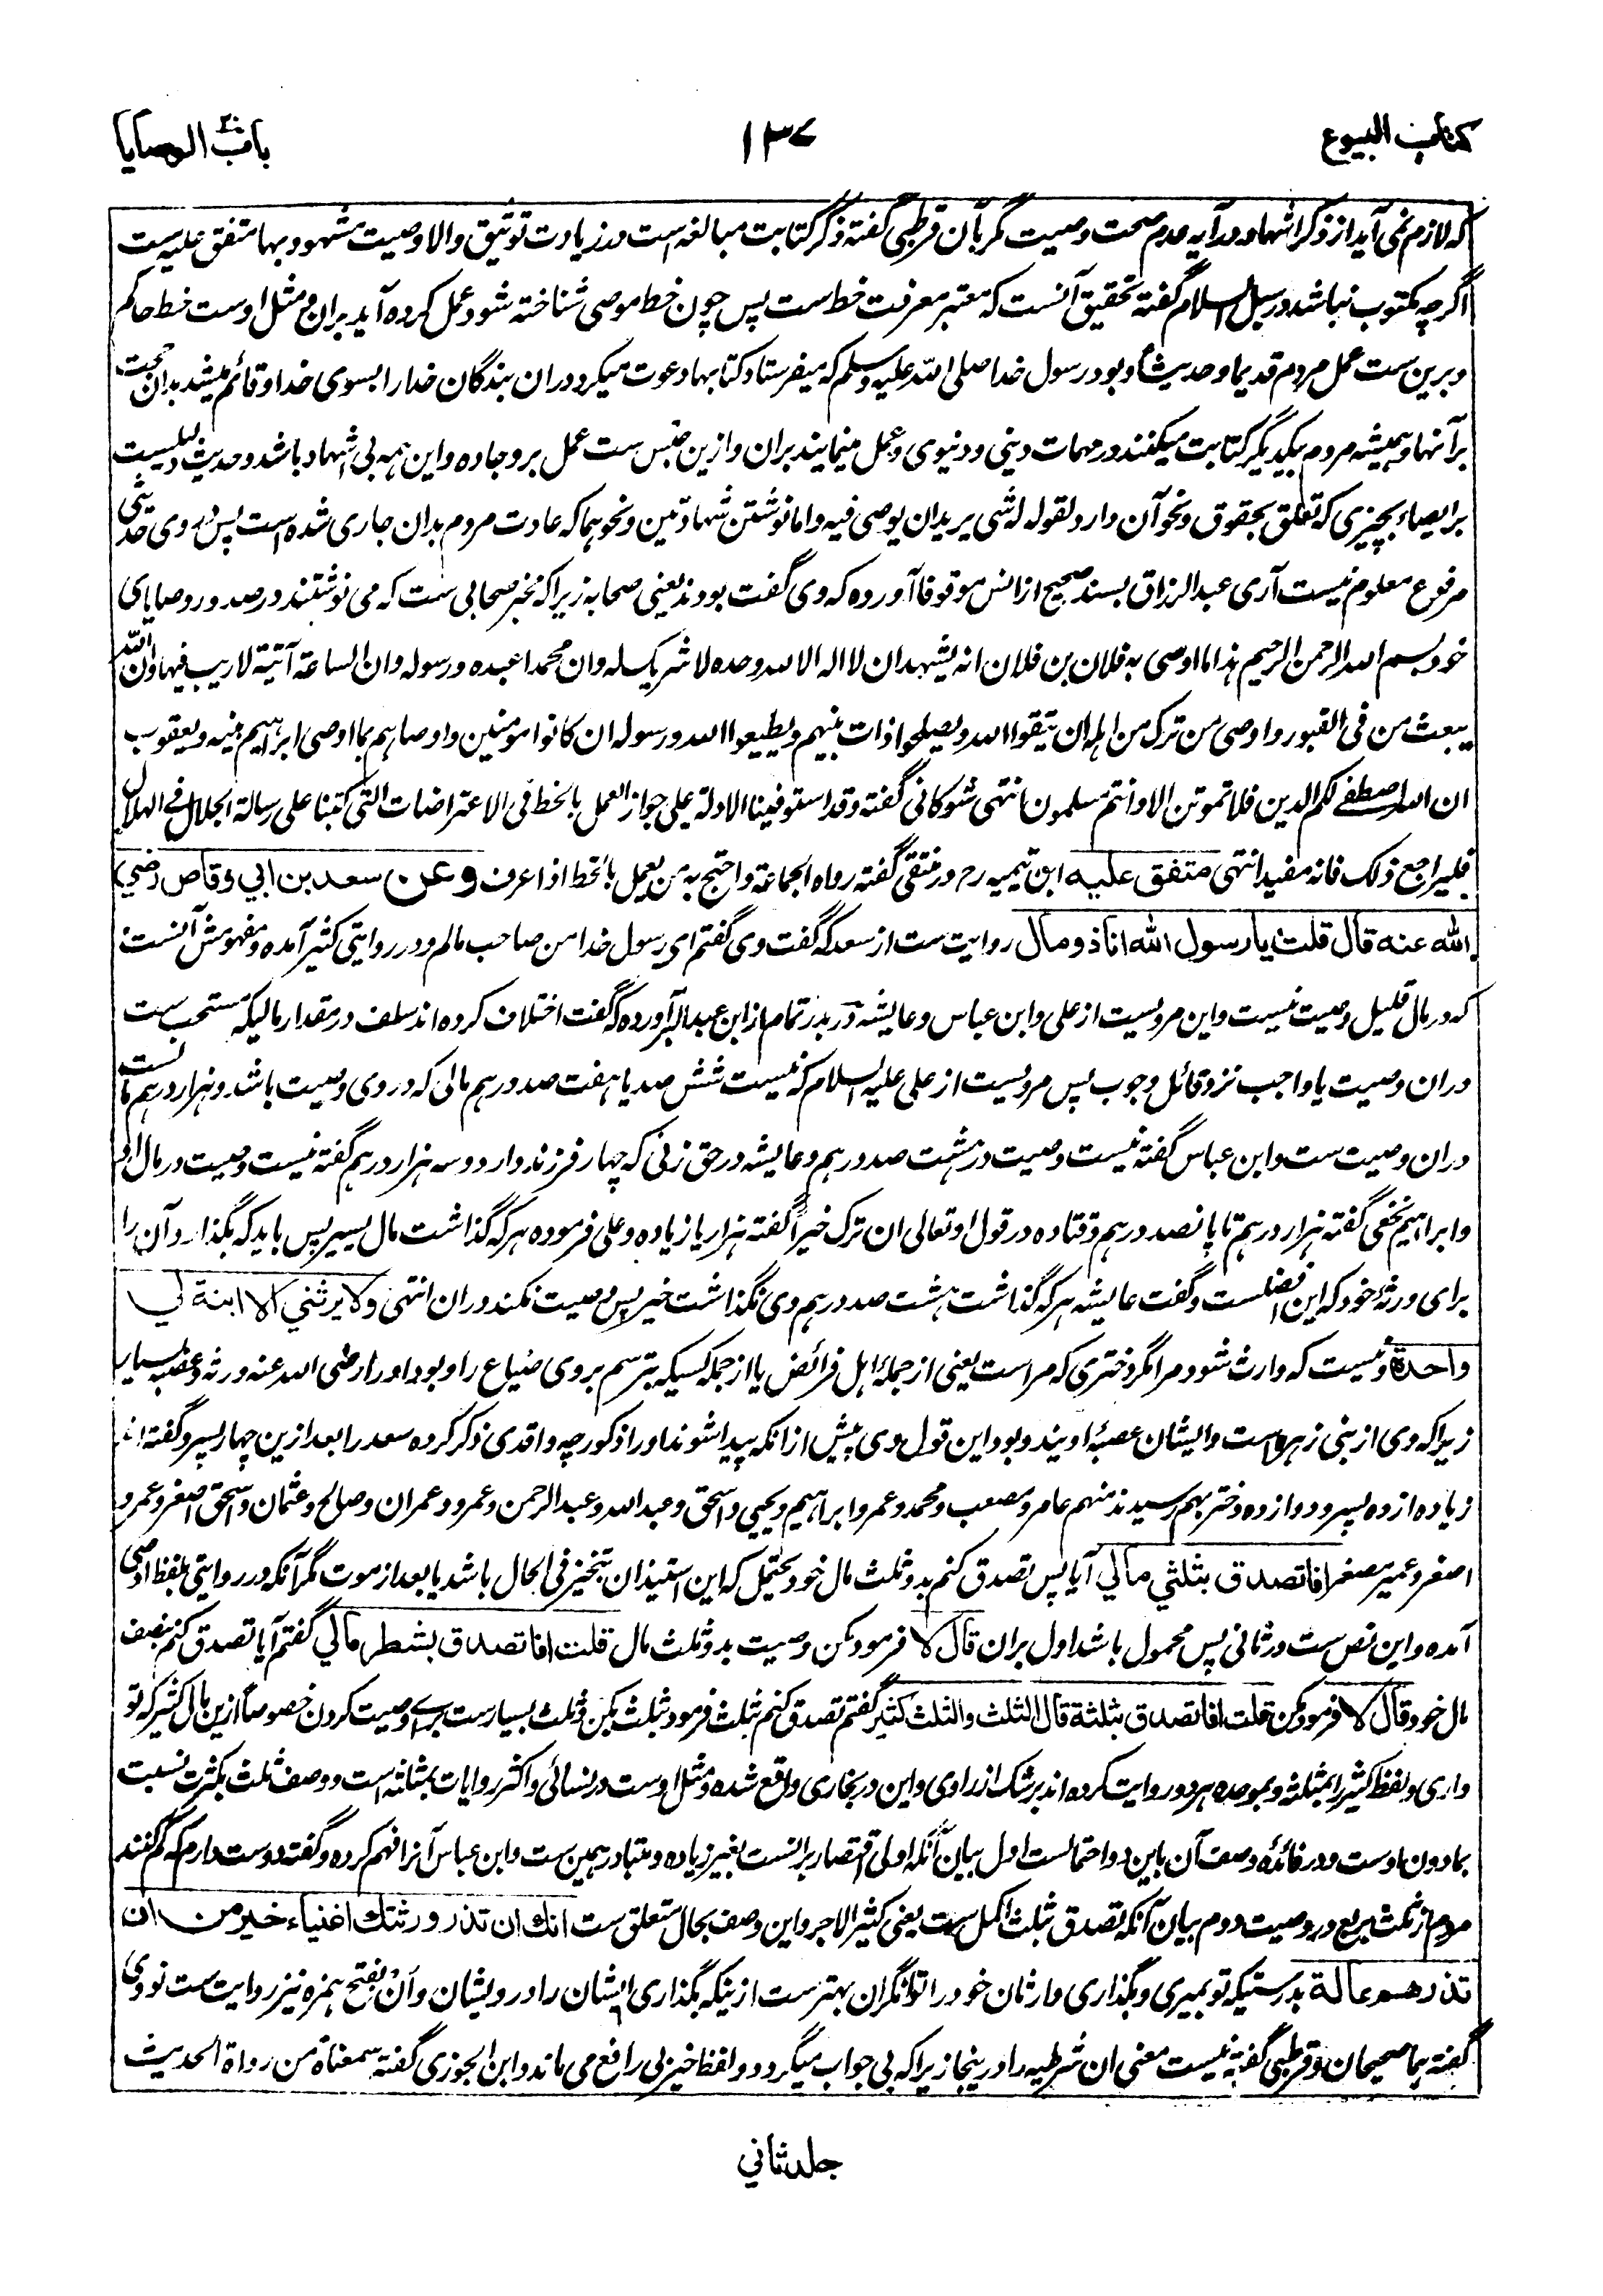 کتاب البیوع
۱۳۷
باب الوصایا
که لازم نمی آید از ذکر اشهاد در آیه عدم صحت وصیت مگر بآن قرطبی گفته ذکر کتابت مبالغه است در زیادت توثیق والا وصیت مشهود بها متفق علیه ست
اگرچه مکتوب نباشد در سبل السلام گفته تحقیق آنست که معتبر معرفت خط ست پس چون خط موصی شناخته شود عمل کرده آید بران و مثل اوست خط حاکم
و برین ست عمل مردم قدیما و حدیثا و بود رسول خدا صلی الله علیه وسلم که میفرستاد کتابها دعوت میکرد دران بندگان خدا را بسوی خدا و قائم میشد بدان حجت
بر آنها و همیشه مردم بیکدیگر کتابت میکنند در مهمات دینی و دنیوی و عمل مینمایند بران و ازین جنس ست عمل بر وجاده و این همه بی اشهاد باشد و حدیث دلیلست
بر ایصاء بچیزی که تعلق بحقوق و نحو آن دارد لقوله له شی یرید ان یوصی فیه و اما نوشتن شهادتین و نحو هما که عادت مردم بدان جاری شده است پس در وی حدیثی
مرفوع معلوم نیست آری عبدالرزاق بسند صحیح از انس موقوفا آورده که وی گفت بودند یعنی صحابه زیرا که مخبر صحابی ست که می نوشتند در صدور وصایای
خود بسم الله الرحمن الرحیم هذا ما اوصی به فلان بن فلان انه یشهد ان لا اله الا الله وحده لا شریک له وان محمدا عبده ورسوله وان الساعة آتیة لا ریب فیها وان الله
یبعث من فی القبور و اوصی من ترک من اهله ان یتقوا الله ویصلحوا ذات بینهم ویطیعوا الله ورسوله ان کانوا مؤمنین و اوصاهم بما اوصی ابراهیم بنیه ویعقوب
ان الله اصطفی لکم الدین فلا تموتن الا وانتم مسلمون انتهی شوکانی گفته وقد استوفینا الادلة علی جواز العمل بالخط فی الاعتراضات التی کتبنا علی رسالة الجلال فی الهلال
فلیراجع ذلک فانه مفید انتهی متفق علیه ابن تیمیه رح در منتقی گفته رواه الجماعة واحتج به من یعمل بالخط اذا عرف وعن سعد بن ابي وقاص رضي
الله عنه قال قلت یا رسول الله انا ذو مال روایت ست از سعد که گفت وی گفتم ای رسول خدا من صاحب مالم و در روایتی کثیر آمده و مفهومش آنست
که در مال قلیل وصیت نیست و این مرویست از علی و ابن عباس و عایشه در بدر تمام از ابن عبدالبر آورده که گفت اختلاف کرده اند سلف در مقدار مالیکه مستحب ست
دران وصیت یا واجب نزد قائل وجوب پس مرویست از علی علیه السلام که نیست شش صد یا هفت صد درهم مالی که در وی وصیت باشد و هزار درهم مالست
دران وصیت ست و ابن عباس گفته نیست وصیت در هشت صد درهم و عایشه در حق زنی که چهار فرزند دارد و سه هزار درهم گفته نیست وصیت در مال او
و ابراهیم نخفی گفته هزار درهم تا پانصد درهم و قتاده در قول او تعالی ان ترک خیرا گفته هزار یا زیاده و علی فرموده هر که گذاشت مال یسیر پس باید که بگذارد آن را
برای ورثهٔ خود که این افضلست و گفت عایشه هر که گذاشت هشت صد درهم وی نگذاشت خیر پس وصیت نکند دران انتهی ولا یرثني الا ابنة لي
واحدة و نیست که وارث شود مرا مگر دختری که مراست یعنی از جملهٔ اهل فرائض یا از جمله کسیکه بترسم بر وی ضیاع را و بود او را رضی الله عنه ورثه و عصبه بسیار
زیرا که وی از بنی زهره است و ایشان عصبهٔ اویند و بود این قول وی پیش از آنکه پیدا شوند او را ذکور چه واقدی ذکر کرده سعد را بعد ازین چهار پسر و گفته اند
زیاده از ده پسر و دوازده دختر بهم رسیدند منهم عامر و مصعب و محمد و عمر و ابراهیم و یحیی و اسحق و عبدالله و عبدالرحمن و عمرو و عمران و صالح و عثمان و اسحق اصغر و عمرو
اصغر و عمیر مصغر افا تصدق بثلثي مالي آیا پس تصدق کنم بدو ثلث مال خود یحتمل که این استیذان تنجیز فی الحال باشد یا بعد از موت مگر آنکه در روایتی بلفظ اوصی
آمده و این نص ست در ثانی پس محمول باشد اول بران قال لا فرمود مکن وصیت بدو ثلث مال قلت افا تصدق بشطر مالي گفتم آیا تصدق کنم بنصف
مال خود قال لا فرمود مکن قلت افا تصدق بثلثة قال الثلث والثلث کثیر گفتم تصدق کنم بثلث فرمود ثلث بکن و ثلث بسیارست برای وصیت کردن خصوصا ازین مال کثیر که تو
داری و لفظ کثیر را بمثلثه و بموحده هر دو روایت کرده اند بر شک از راوی و این در بخاری واقع شده و مثل اوست در نسائی و اکثر روایات بمثلثه است و وصف ثلث بکثرت نسبت
بمادون اوست و در فائدهٔ وصف آن باین دو احتمالست اول بیان آنکه اولی اقتصار برانست بغیر زیاده و متبادر همین ست و ابن عباس آنرا فهم کرده و گفته دوست دارم که کم کنند
مردم از ثلث بربع در وصیت دوم بیان آنکه تصدق بثلث اکمل ست یعنی کثیر الاجر و این وصف بحال متعلق ست انك ان تذر ورثتك اغنیاء خیر من ان
تذرهم عالة بدرستیکه تو بمیری و بگذاری وارثان خود را توانگران بهترست از ینکه بگذاری ایشان را درویشان و أن بفتح همزه نیز روایت ست نووی
گفته هما صحیحان و قرطبی گفته نیست معنی ان شرطیه را درینجا زیرا که بی جواب میگردد و لفظ خیر بی رافع می ماند و ابن الجوزی گفته سمعناه من رواة الحدیث
جلد ثاني